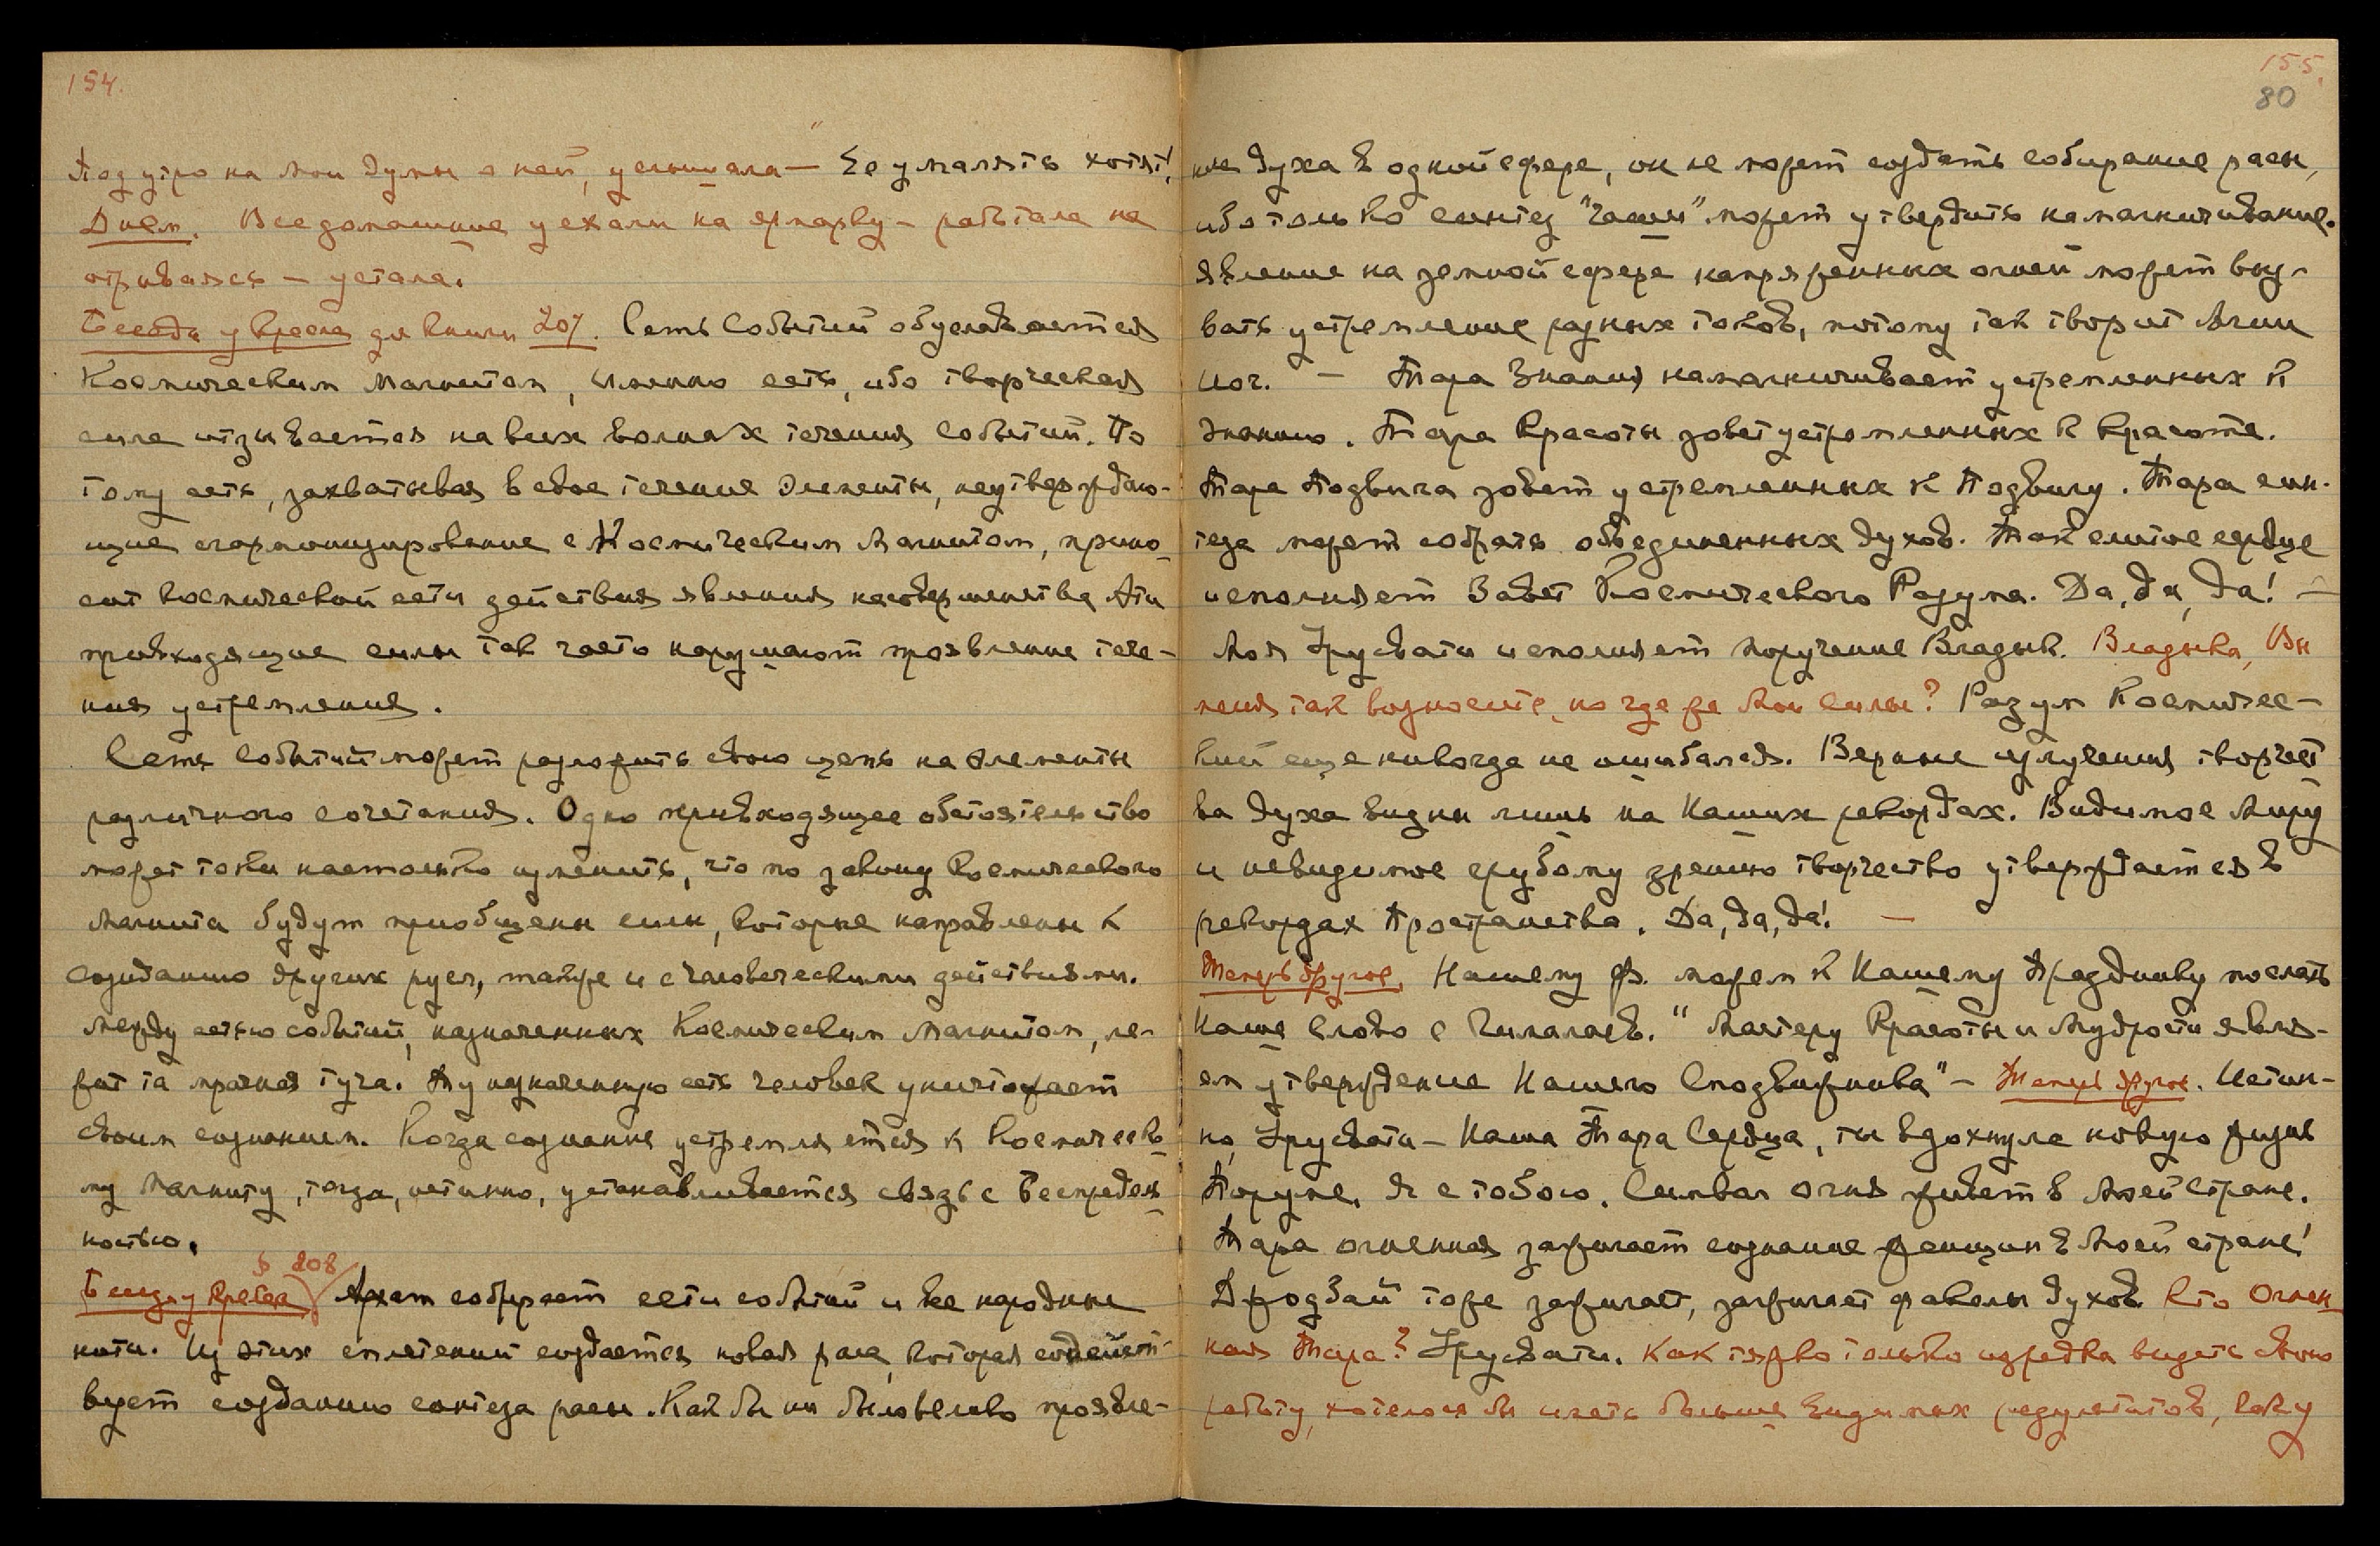 154.
Под утро на мои думы о ней, услышала — Ее умалять хотят!
Днем. Все домашние уехали на ярмарку – работала не
отрываясь – устала.
Беседа у кресла для книги 207. Сеть Событий обуславляется
Космическим Магнитом, Именно сеть, ибо творческая
сила отзывается на всех волнах течения Событий. По
тому сеть, захватывая в свое течение Элементы, неутверждаю-
щие сгармонизирование с Космическим Магнитом, прино-
сит космической сети действия явления несовершенства. Эти
привходящие силы так часто нарушают проявление тече-
ния устремления.
Сеть Событий может разложить свою цепь на элементы
различного сочетания. Одно привходящее обстоятельство
может токи настолько изменить, что по закону Космического
Магнита будут приобщены силы, которые направлены к
созиданию других русл, также и с человеческими действиями.
Между сетью событий, назначенных Космическим Магнитом, ле-
жит та мрачная туча. Ту назначенную сеть человек уничтожает
своим сознанием. Когда сознание устремляется к Космическо-
му Магниту, тогда, истинно, устанавливается связь с Беспредель-
ностью.
§ 208
Беседа у Кресла. Архат собирает сети событий и все народные
нити. Из этих сплетений создается новая раса, которая содейст-
вует созданию синтеза расы. Как бы ни было велико проявле-
155.
80
ние духа в одной сфере, он не может создать собирание расы,
ибо только синтез "чаши" может утвердить намагничивание.
явление на земной сфере напряженных огней может выз-
вать устремление разных токов, потому так творит Агни
Иог. — Тара Знания намагничивает устремленных к
знанию. Тара Красоты зовет устремленных к Красоте.
Тара Подвига зовет устремленных к Подвигу. Тара син-
теза может собрать объединенных духов. Так слитое сердце
исполняет Завет Космического Разума. Да, да, да! —
Моя Урусвати исполняет поручение Владык. Владыка, Вы
меня так возносите, но где же Мои силы? Разум Космичес-
кий еще никогда не ошибался. Верные излучения творчест
ва духа видны лишь на Наших рекордах. Видимое Миру
и невидимое грубому зрению творчество утверждается в
рекордах Пространства. Да, да, да! —
Теперь другое. Нашему Ф. можем к Нашему Празднику послать
Наше Слово с Гималаев. "Мастеру Красоты и Мудрости явля-
ем утверждение Нашего Сподвижника" – Теперь другое. Истин-
но, Урусвати – Наша Тара Сердца, ты вдохнула новую жизнь
Поруме. Я с тобою. Символ огня живет в Моей Стране.
Тара огненная зажигает сознание женщин в Моей стране!
Дподбай тоже зажигает, зажигает факелы духов. Кто Огнен-
ная Тара? Урусвати. Как тяжко только изредка видеть свою
работу, хотелось бы иметь больше видимых результатов, хожу